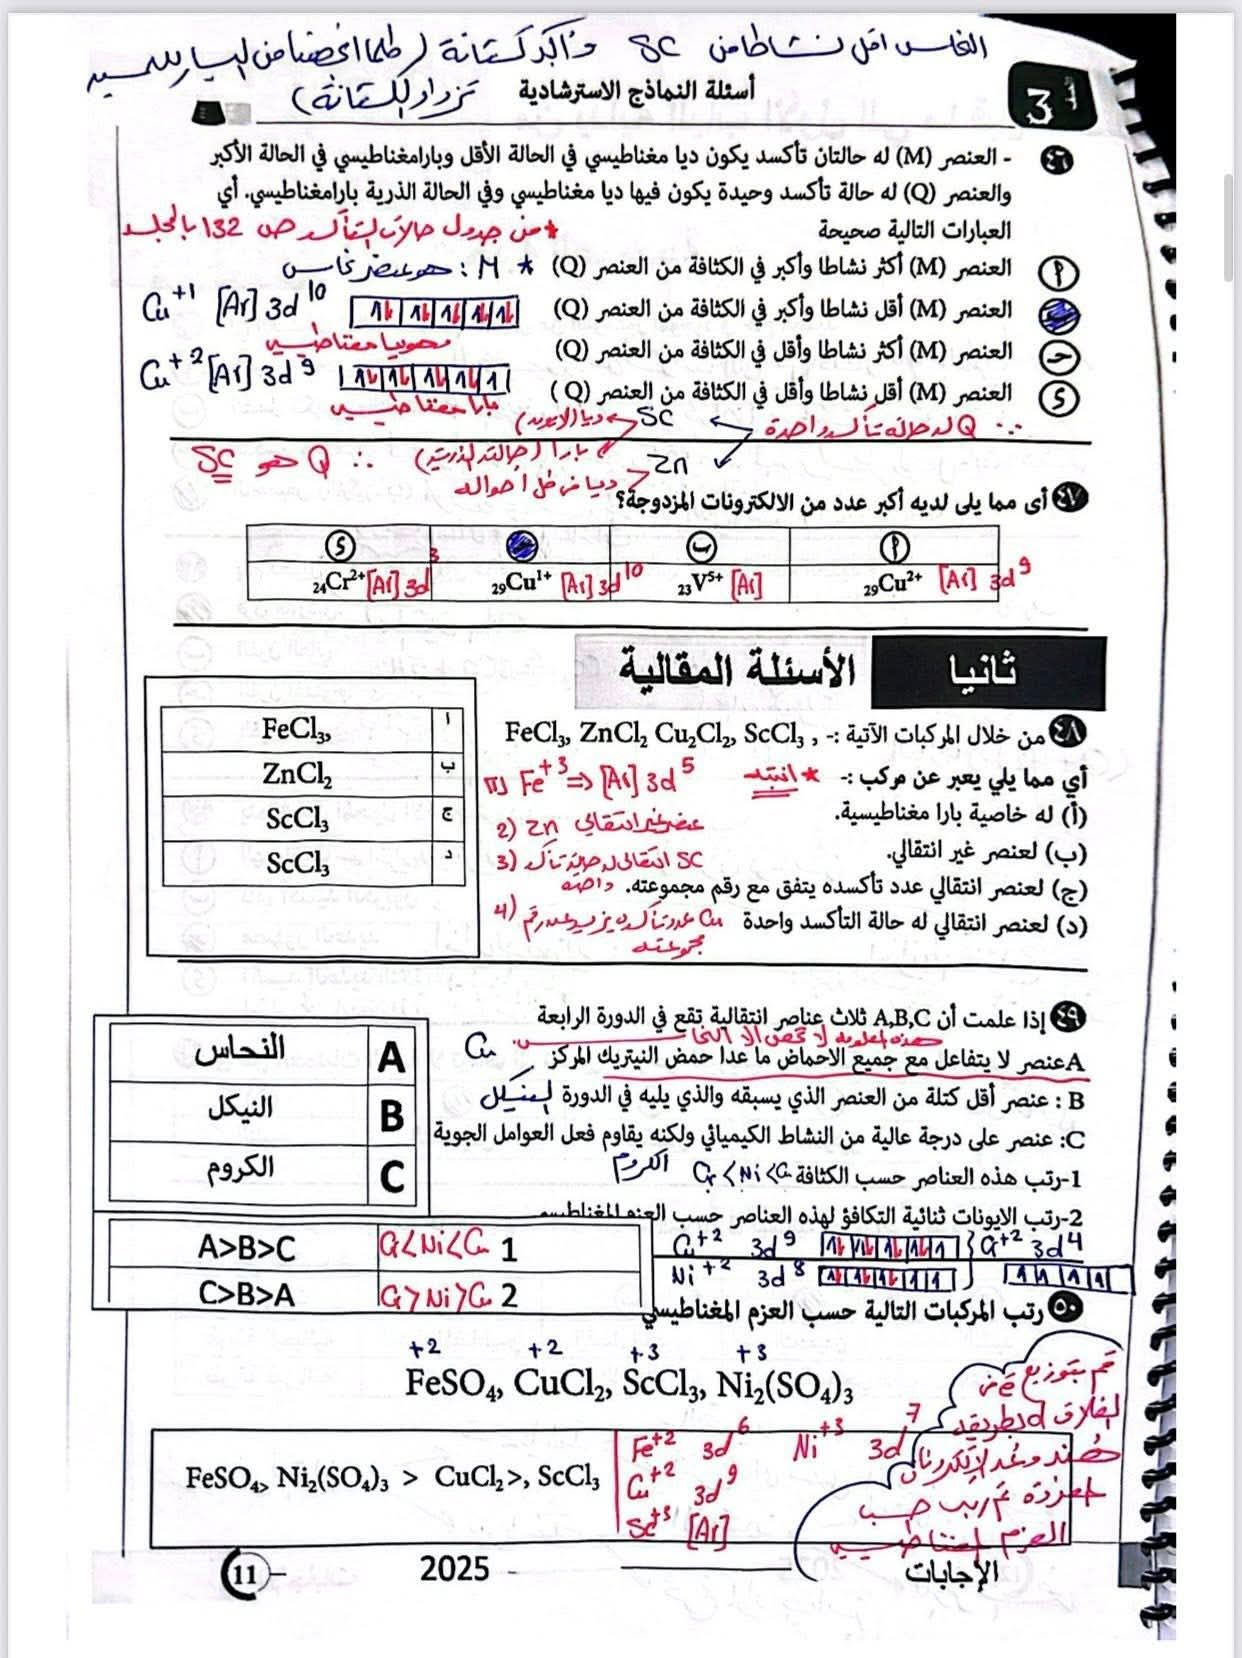 النحاس اقل نشاطا من Sc واكبر كثافة (كلما اتجهنا من اليسار لليمين
تزداد الكثافة)
أسئلة النماذج الاسترشادية
3
٤٦ - العنصر (M) له حالتان تأكسد يكون ديا مغناطيسي في الحالة الأقل وبارامغناطيسي في الحالة الأكبر
والعنصر (Q) له حالة تأكسد وحيدة يكون فيها ديا مغناطيسي وفي الحالة الذرية بارامغناطيسي. أي
العبارات التالية صحيحة
* من جدول حالات التأكسد ص 132 بالمجلد
أ العنصر (M) أكثر نشاطا وأكبر في الكثافة من العنصر (Q)
* M : هو عنصر نحاس
العنصر (M) أقل نشاطا وأكبر في الكثافة من العنصر (Q)
Cu+1 [Ar] 3d10
جـ العنصر (M) أكثر نشاطا وأقل في الكثافة من العنصر (Q)
د العنصر (M) أقل نشاطا وأقل في الكثافة من العنصر (Q )
Cu+2 [Ar] 3d9
بارا مغناطيسي
∴ Q له حالة تأكسد واحدة
Sc ديا (الايون)
بارا (حالته الذرية)
Zn ديا في كل أحواله
∴ Q هو Sc
٤٧ أى مما يلى لديه أكبر عدد من الالكترونات المزدوجة؟
أ ب د
29Cu2+ [Ar] 3d9
23V5+ [Ar]
29Cu1+ [Ar] 3d10
24Cr2+ [Ar] 3d3
ثانيا الأسئلة المقالية
٤٨ من خلال المركبات الآتية :- FeCl3, ZnCl2 Cu2Cl2, ScCl3 ,
أي مما يلي يعبر عن مركب :-
* انتبه
1) Fe+3 ⇒ [Ar] 3d5
(أ) له خاصية بارا مغناطيسية.
2) Zn عنصر غير انتقالي
(ب) لعنصر غير انتقالي.
3) Sc انتقالى له حالة تأكسد
واحدة
(ج) لعنصر انتقالي عدد تأكسده يتفق مع رقم مجموعته.
(د) لعنصر انتقالي له حالة التأكسد واحدة
4) Cu عدد تأكسده يزيد عن رقم
مجموعته
ا FeCl3,
ب ZnCl2
ج ScCl3
د ScCl3
٤٩ إذا علمت أن A,B,C ثلاث عناصر انتقالية تقع في الدورة الرابعة
هذه المعلومة لا تخص الا النحاس
A عنصر لا يتفاعل مع جميع الاحماض ما عدا حمض النيتريك المركز Cu
B : عنصر أقل كتلة من العنصر الذي يسبقه والذي يليه في الدورة النيكل
C: عنصر على درجة عالية من النشاط الكيميائي ولكنه يقاوم فعل العوامل الجوية
الكروم
1-رتب هذه العناصر حسب الكثافة Cr < Ni < Cu
2-رتب الايونات ثنائية التكافؤ لهذه العناصر حسب العزم المغناطيسي
Cu+2 3d9
Cr+2 3d4
Ni+2 3d8
A النحاس
B النيكل
C الكروم
1 Cr<Ni<Cu A>B>C
2 Cr>Ni>Cu C>B>A
٥٠ رتب المركبات التالية حسب العزم المغناطيسي
+2 +2 +3 +3
FeSO4, CuCl2, ScCl3, Ni2(SO4)3
تم بتوزيع e في
الغلاف d بطريقة
هند وعد الإلكترونات
المفردة ثم رتب حسب
العزم المغناطيسي
Fe+2 3d6 Ni+3 3d7
Cu+2 3d9
Sc+3 [Ar]
FeSO4> Ni2(SO4)3 > CuCl2>, ScCl3
الإجابات
2025
11